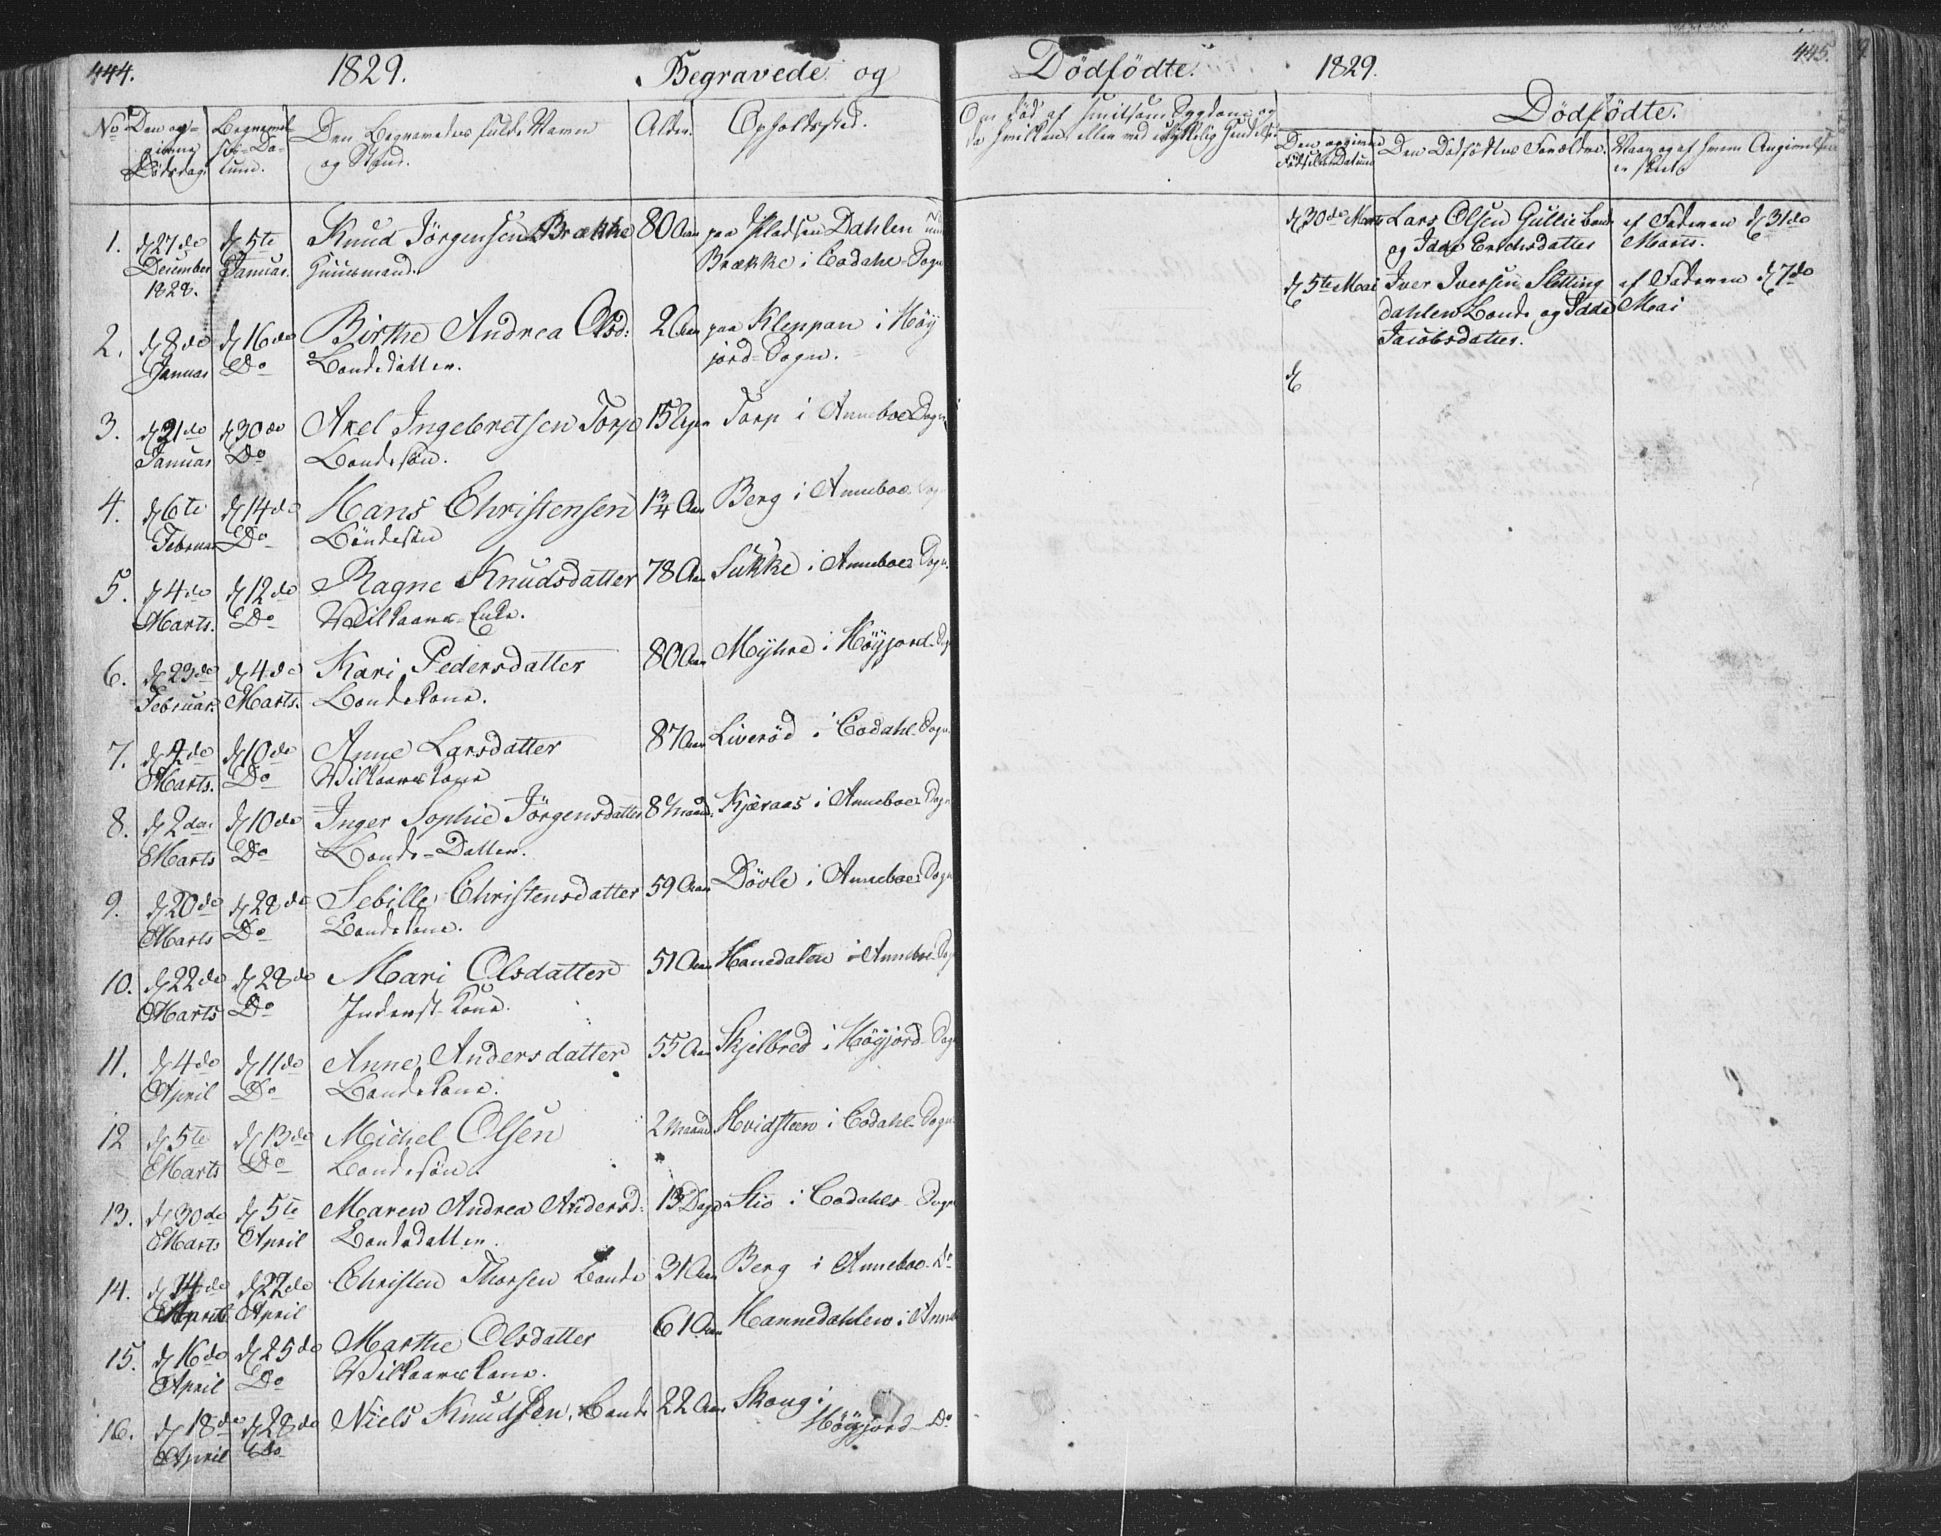 444. 1829. Begravede og
No Den op- givne Dödsdag. Begravel- ses-Da- tum. Den Begravedes fulde Navn og Stand. Alder. Opholdssted.
1. d 27de December 1828. d 5te Januar. Knud Jörgensen Brække Huusmand. 80 Aar paa Pladsen Dahlen Brække i Codahl Sogn
2. d 8de Januar d 16de Do Birthe Andrea Olsd: Bondedatter. 2 Aar paa Kleppan i Höy jord-Sogn.
3. d 21de Januar d 30de Do Axel Ingebretsen Torp Bondesön. 15 Uger Torp i Anneboe Sogn
4. d 6te Februar d 14de Do Hans Christensen Bondesön 1 3/4 Aar Berg i Anneboe Sogn
5. d 4de Marts. d 12de Do Ragne Knudsdatter Vilkaars-Enke. 78 Aar Sukke i Anneboe Sogn.
6. d 23de Februar. d 4de Marts. Kari Pedersdatter Bondekone. 80 Aar Myhre i Höyjord-Sogn
7. d 4de Marts. d 10de Do Anne Larsdatter Vilkaarskone 87 Aar Liveröd i Codahl-Sogn
8. d 2den Marts d 10de Do Inger Sophie Jörgensdatter Bonde-Datter. 8 Maand. Kjæraas i Anneboe Sogn
9. d 20de Marts d 28de Do Sebille Christensdatter Bondekone. 59 Aar Dövle i Anneboe-Sogn
10. d 22de Marts d 28de Do Mari Olsdatter Inderst-Kone. 51 Aar Hanedalen i Anneboe-Sogn
11. d 4de April d 11de Do Anne Andersdatter Bondekone. 55 Aar Skjelbred i Höyjord-Sogn
12 d 5te Marts d 13de Do Michel Olsen Bondesön. 2 Maand Hvidsteen i Codahl-Sogn
13. d 30de Marts d 5te April Maren Andrea Andersd. Bondedatter. 13 Dage Stio i Codahls-Sogn
14. d 14de April d 22de April Christen Thorsen Bonde 31 Aar Berg i Anneboe-Do
15. d 16de April d 25de Do Marthe Olsdatter Vilkaarskone. 61 Aar Hannedahlen i Anneb
16. d 18de April d 28de Do Niels Knudsen, Bonde 22 Aar Skoug i Höyjord-Do
Dödfödte. 1829. 445.
Om död af smitsom Sygdom og da hvilken, eller ved ulykkelig Hændelse
Dödfödte.
Den opgivne Födselsdatum Den Dödfödtes Forældre. Naar og af hvem Angivelsen er skeet
d 30de Marts Lars Olsen Gullie Bonde og Idde Erichsdatter af Faderen d 31de Marts.
d 5te Mai Iver Iversen Sletting dahlen Bonde og Idde Jacobsdatter. af Faderen d 7de Mai
d